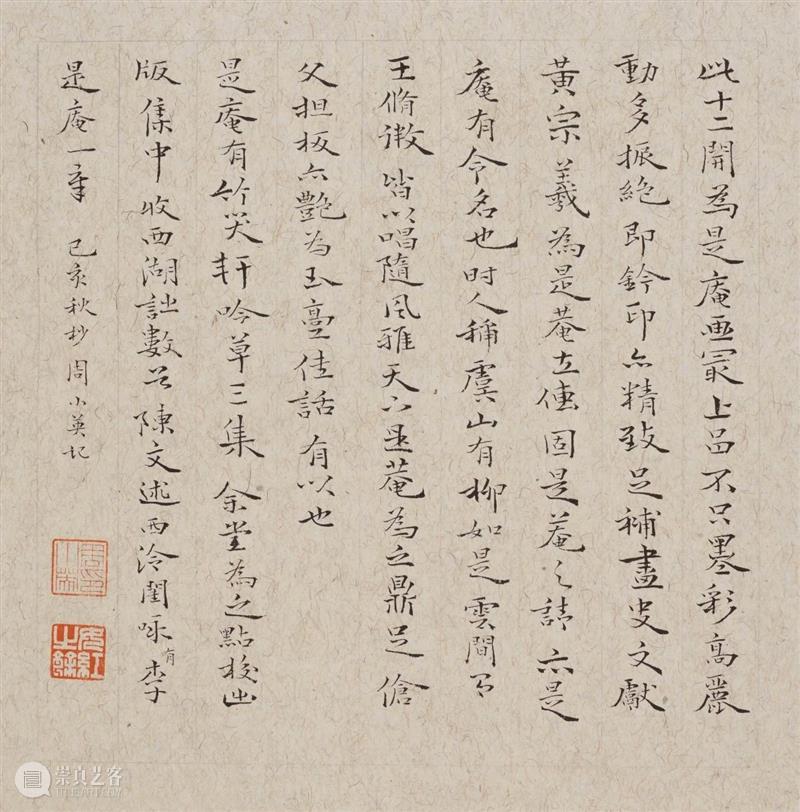 此十二開為是庵画最上品不只墨彩高麗
動多振絶即鈐印亦精致足補畫史文獻
黃宗羲為是菴立傳固是菴之請亦是
庵有令名也时人稱虞山有柳如是雲間有
王脩微皆以唱隨風雅天下是菴為之鼎足傖
父担板亦艷為玉臺佳話有以也
是庵有竹笑軒吟草三集余嘗為之點校出
版集中收西湖詠數首陳文述西泠閨咏有李
是庵一章 己亥秋杪周小英記
女紅之餘
崇真艺客